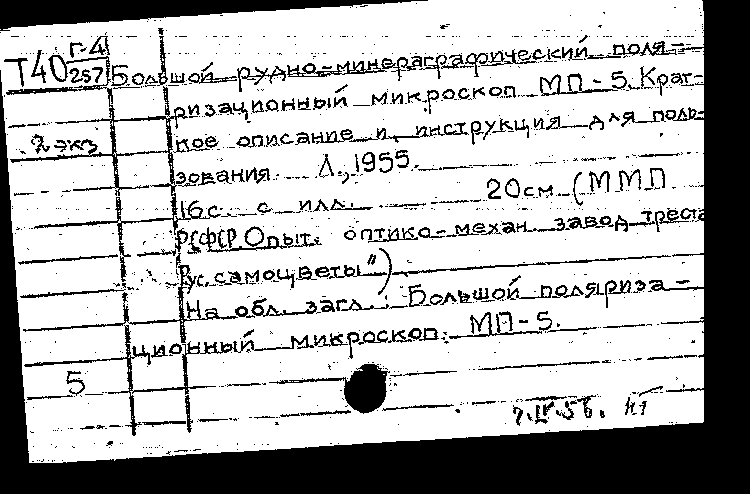 Г-4
Т40 257 Большой рудно-минераграфический поля-
ризационный микроскоп МП-5. Крат-
2 экз. кое описание и инструкция для поль-
зования. Л., 1955.
16 с. с илл. 20 см (ММП
РСФСР. Опыт. оптико-механ. завод треста
Рус. самоцветы")
На обл. загл.: Большой поляриза-
ционный микроскоп. МП-5.
5